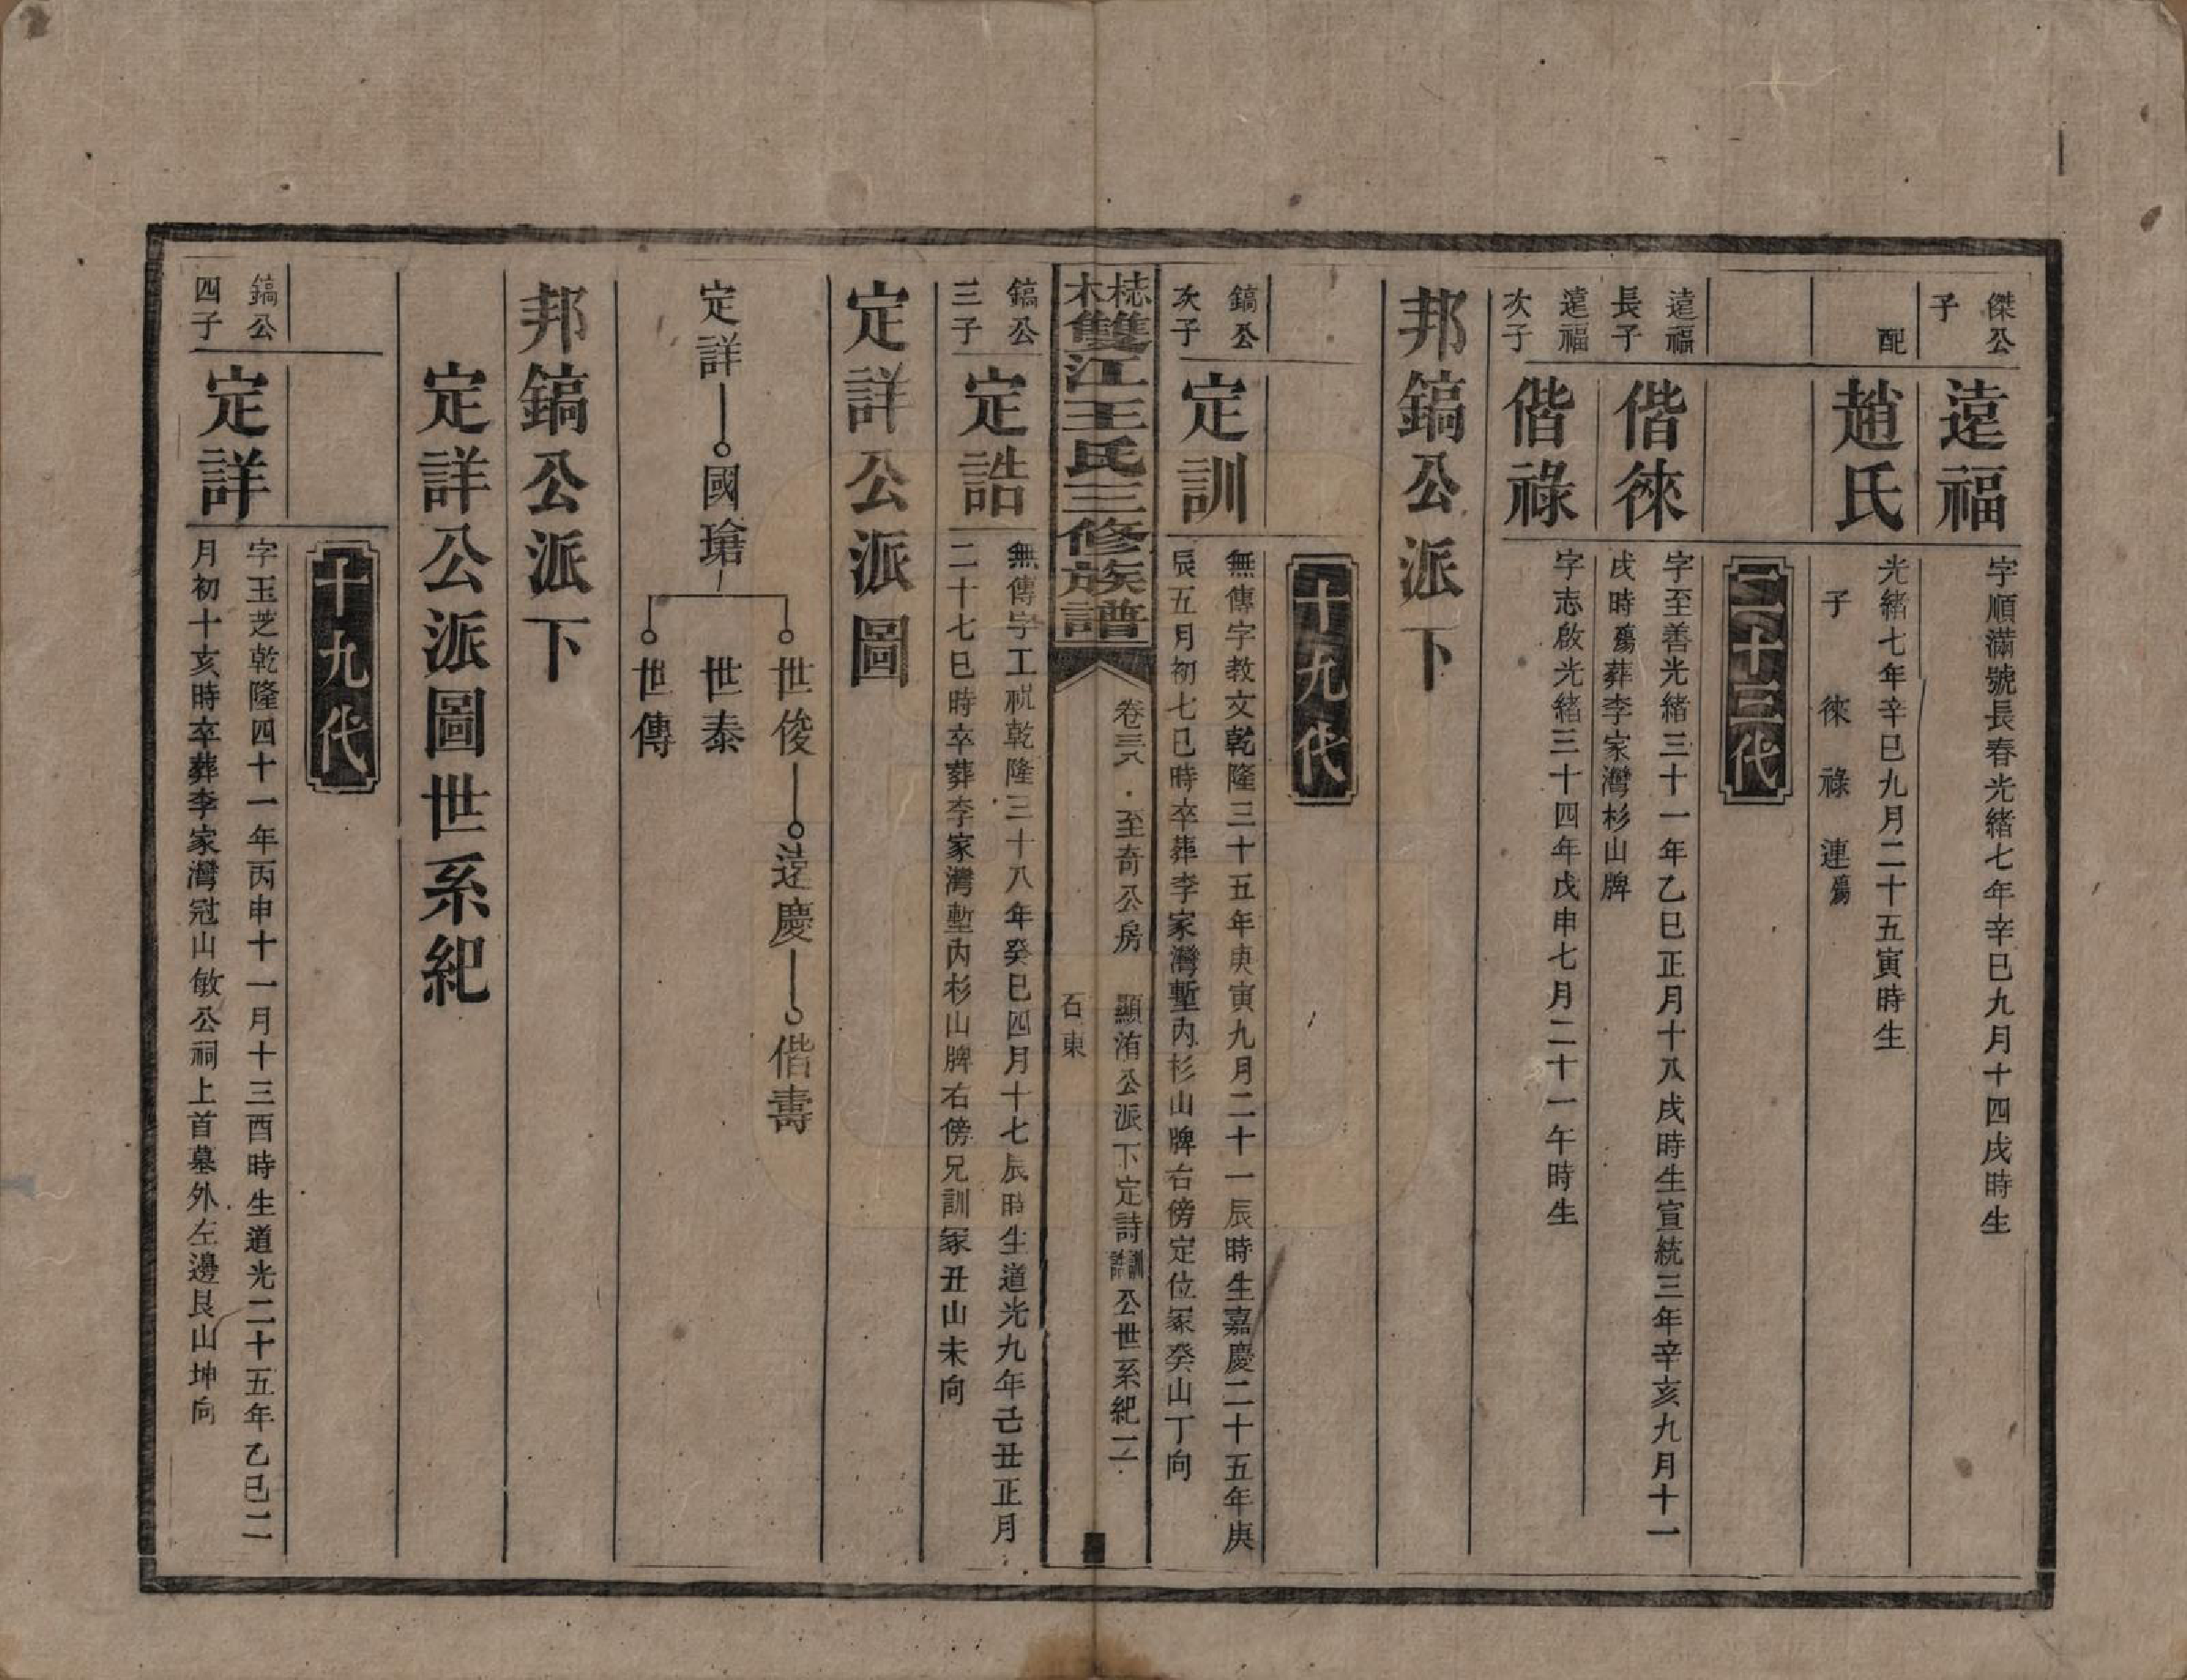 傑公
子
遠福
字順滿號長春光緒七年辛巳九月十四戌時生
配
趙氏
光緒七年辛巳九月二十五寅時生
子 徠 祿 連殤
二十三代
遠福
長子
偕徠
字至善光緒三十一年乙巳正月十八戌時生宣統三年辛亥九月十一
戌時殤葬李家灣杉山牌
遠福
次子
偕祿
字志啟光緒三十四年戊申七月二十一午時生
邦鎬公派下
十九代
鎬公
次子
定訓
無傳字教文乾隆三十五年庚寅九月二十一辰時生嘉慶二十五年庚
辰五月初七巳時卒葬李家灣塹內杉山牌右傍定位冢癸山丁向
梽木雙江王氏三修族譜
卷三八 至奇公房 顯洧公派下定詩訓誥公世系紀 二
石東
鎬公
三子
定誥
無傳字工祝乾隆三十八年癸巳四月十七辰時生道光九年己丑正月
二十七巳時卒葬李家灣塹內杉山牌右傍兄訓冢丑山未向
定詳公派圖
定詳 國瑲
世俊 遠慶 偕壽
世泰
世傳
邦鎬公派下
定詳公派圖世系紀
十九代
鎬公
四子
定詳
字玉芝乾隆四十一年丙申十一月十三酉時生道光二十五年乙巳二
月初十亥時卒葬李家灣冠山敏公祠上首墓外左邊艮山坤向